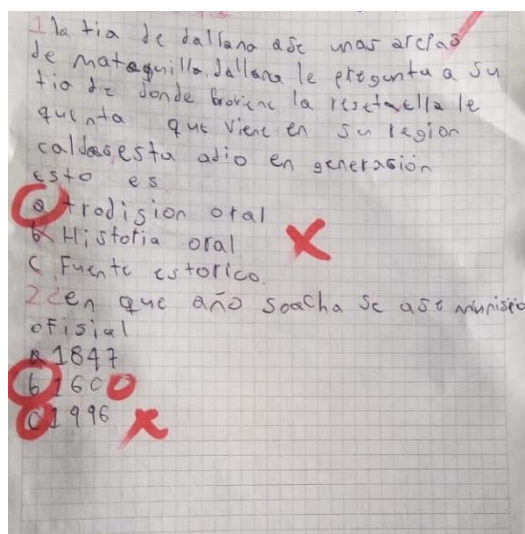 1 la tia de dallana ase unas arepas
de matequilla. dallana le pregunta a su
tia de donde broviene la reseta ella le
quenta que viene en su region
caldas, esta adio en generasión
esto es
a trodision oral
b Historia oral
C Fuente estorico.
2 ¿en que año soacha se ase munisipio
ofisial
a 1847
b 1600
C 1996